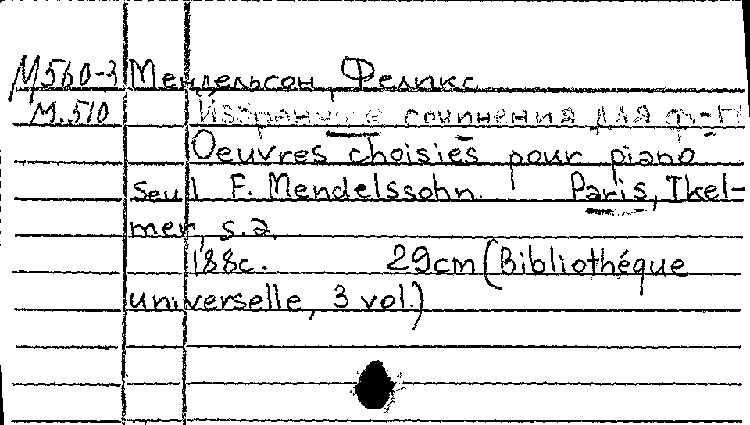 М560-3 Мендельсон, Феликс
М.510 Избранные сочинения для ф-п
Oeuvres choisies pour piano
seul F. Mendelssohn. Paris, Ikel-
mer, s.a.
188c. 29cm (Bibliothéque
universelle, 3 vol.)